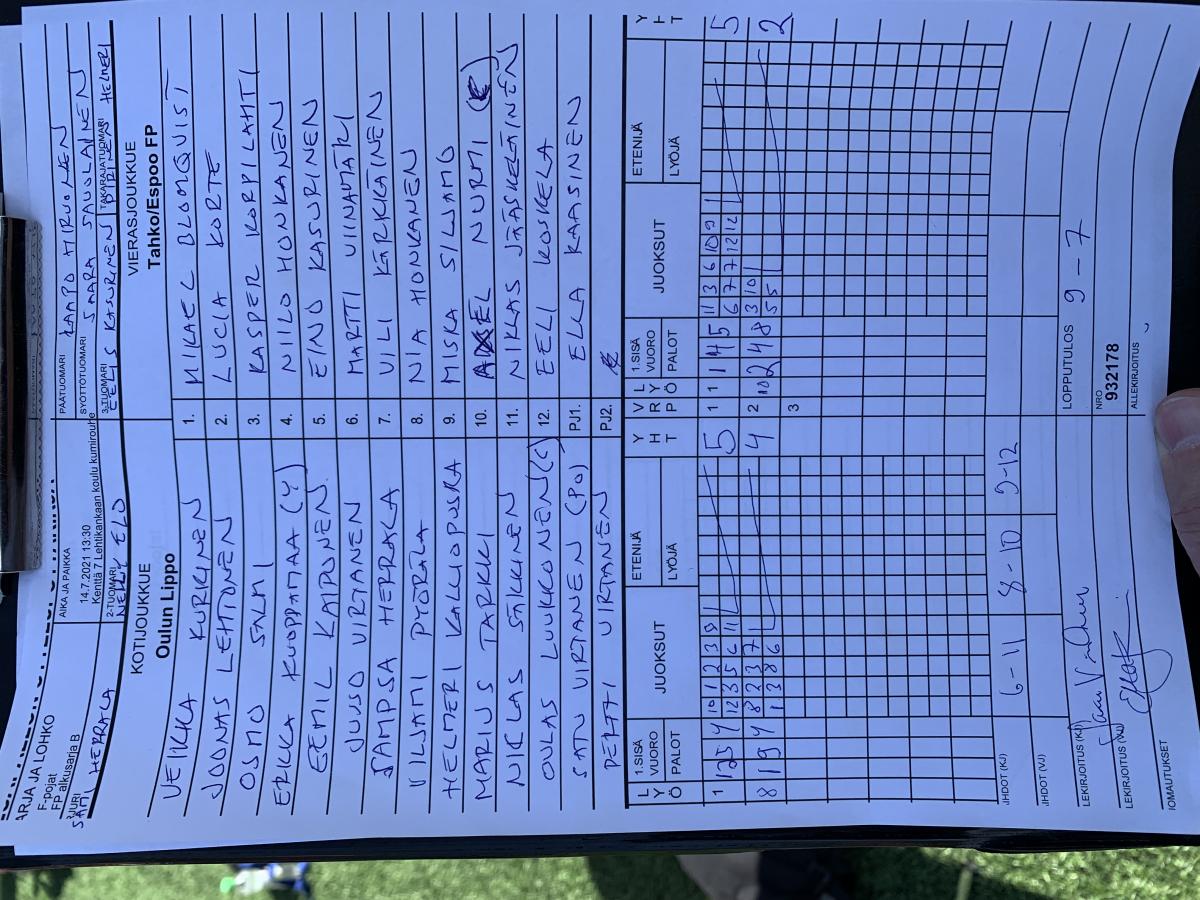 ARJA JA LOHKO
F-pojat
FP alkusarja B
SAMI HERRALA
AIKA JA PAIKKA
14.7.2021 13:30
Kenttä 7 Lehtikankaan koulu kumirouhe
2-TUOMARI
NELLY ELO
PÄÄTUOMARI
KAAPO HIRVONEN
SYÖTTÖTUOMARI
SAARA SAVOLAINEN
3-TUOMARI
EELIS KASURINEN
TAKARAJATUOMARI
PIRINEN HELMERI
KOTIJOUKKUE
Oulun Lippo
VIERASJOUKKUE
Tahko/Espoo FP
VEIKKA KURKINEN 1. MIKAEL BLOMQVIST
JOONAS LEHTONEN 2. LUCIA KORTE
OSMO SALMI 3. KASPER KORPILAHTI
ERKKA KUOPPAMAA (Y) 4. NIILO HONKANEN
EEMIL KAIPONEN 5. EINO KASURINEN
JUUSO VIRTANEN 6. MARTTI VIINAMÄKI
SAMPSA HERRALA 7. VILI KÄRKKÄINEN
VILJAMI PYÖRÄLÄ 8. NIA HONKANEN
HELMERI KALLIOPUSKA 9. MISKA SILJAMO
MARIUS TARKKI 10. AXEL NURMI (C)
NICLAS SÄKKINEN 11. NIKLAS JÄÄSKELÄINEN
OULAS LUUKKONEN (C) 12. EELI KOSKELA
SATU VIRTANEN (PO) PJ1. ELLA KAASINEN
PERTTI VIRTANEN PJ2.
LYÖ 1.SISÄ VUORO PALOT JUOKSUT ETENIJÄ LYÖJÄ YHT VRP LYÖ 1.SISÄ VUORO PALOT JUOKSUT ETENIJÄ LYÖJÄ YHT
1 10 1 2 3 9 5 1 1 1 4 5 11 3 6 10 9 5
12 3 5 6 11 6 7 7 12 12
8 1 9 4 8 2 3 7 4 2 10 2 4 8 3 10 2
1 3 8 6 5 5
3
IHDOT (KJ) 6-11 8-10 9-12
IHDOT (VJ)
LOPPUTULOS 9-7
LEKIRJOITUS (KJ)
NRO
932178
LEKIRJOITUS (VJ)
ALLEKIRJOITUS
IOMAUTUKSET